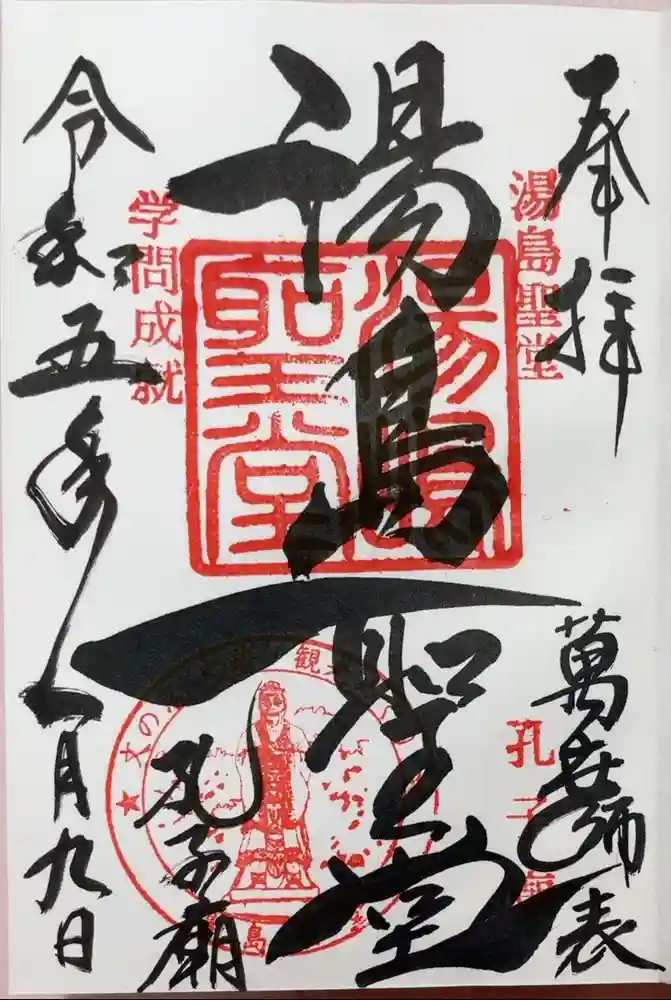 奉拝
湯島聖堂
萬世師表
孔子廟
湯島聖堂
湯島聖堂
孔子廟
学問成就
令和五年一月九日